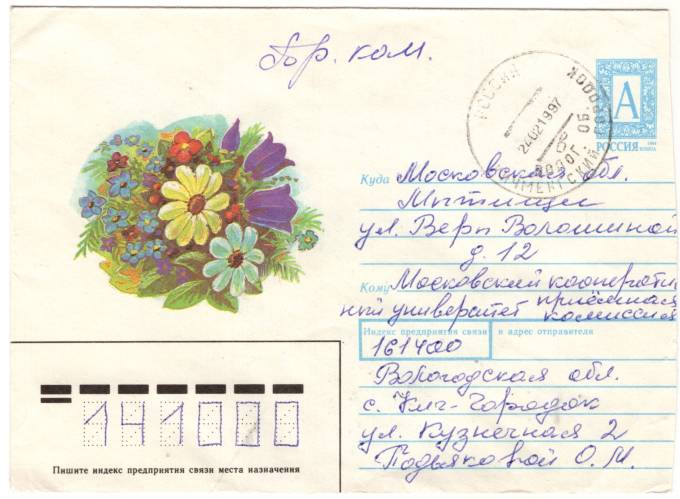 Гор. ком.
РОССИЯ
24021997
А
РОССИЯ
Куда Московская обл.
Мытищи
ул. Веры Волошиной
д. 12
Кому Московский кооператив
ный университет приёмная
комиссия
Индекс предприятия связи и адрес отправителя
161400
Вологодская обл.
с. Кич-Городок
ул. Кузнечная 2
Подьяковой О. М.
141000
Пишите индекс предприятия связи места назначения